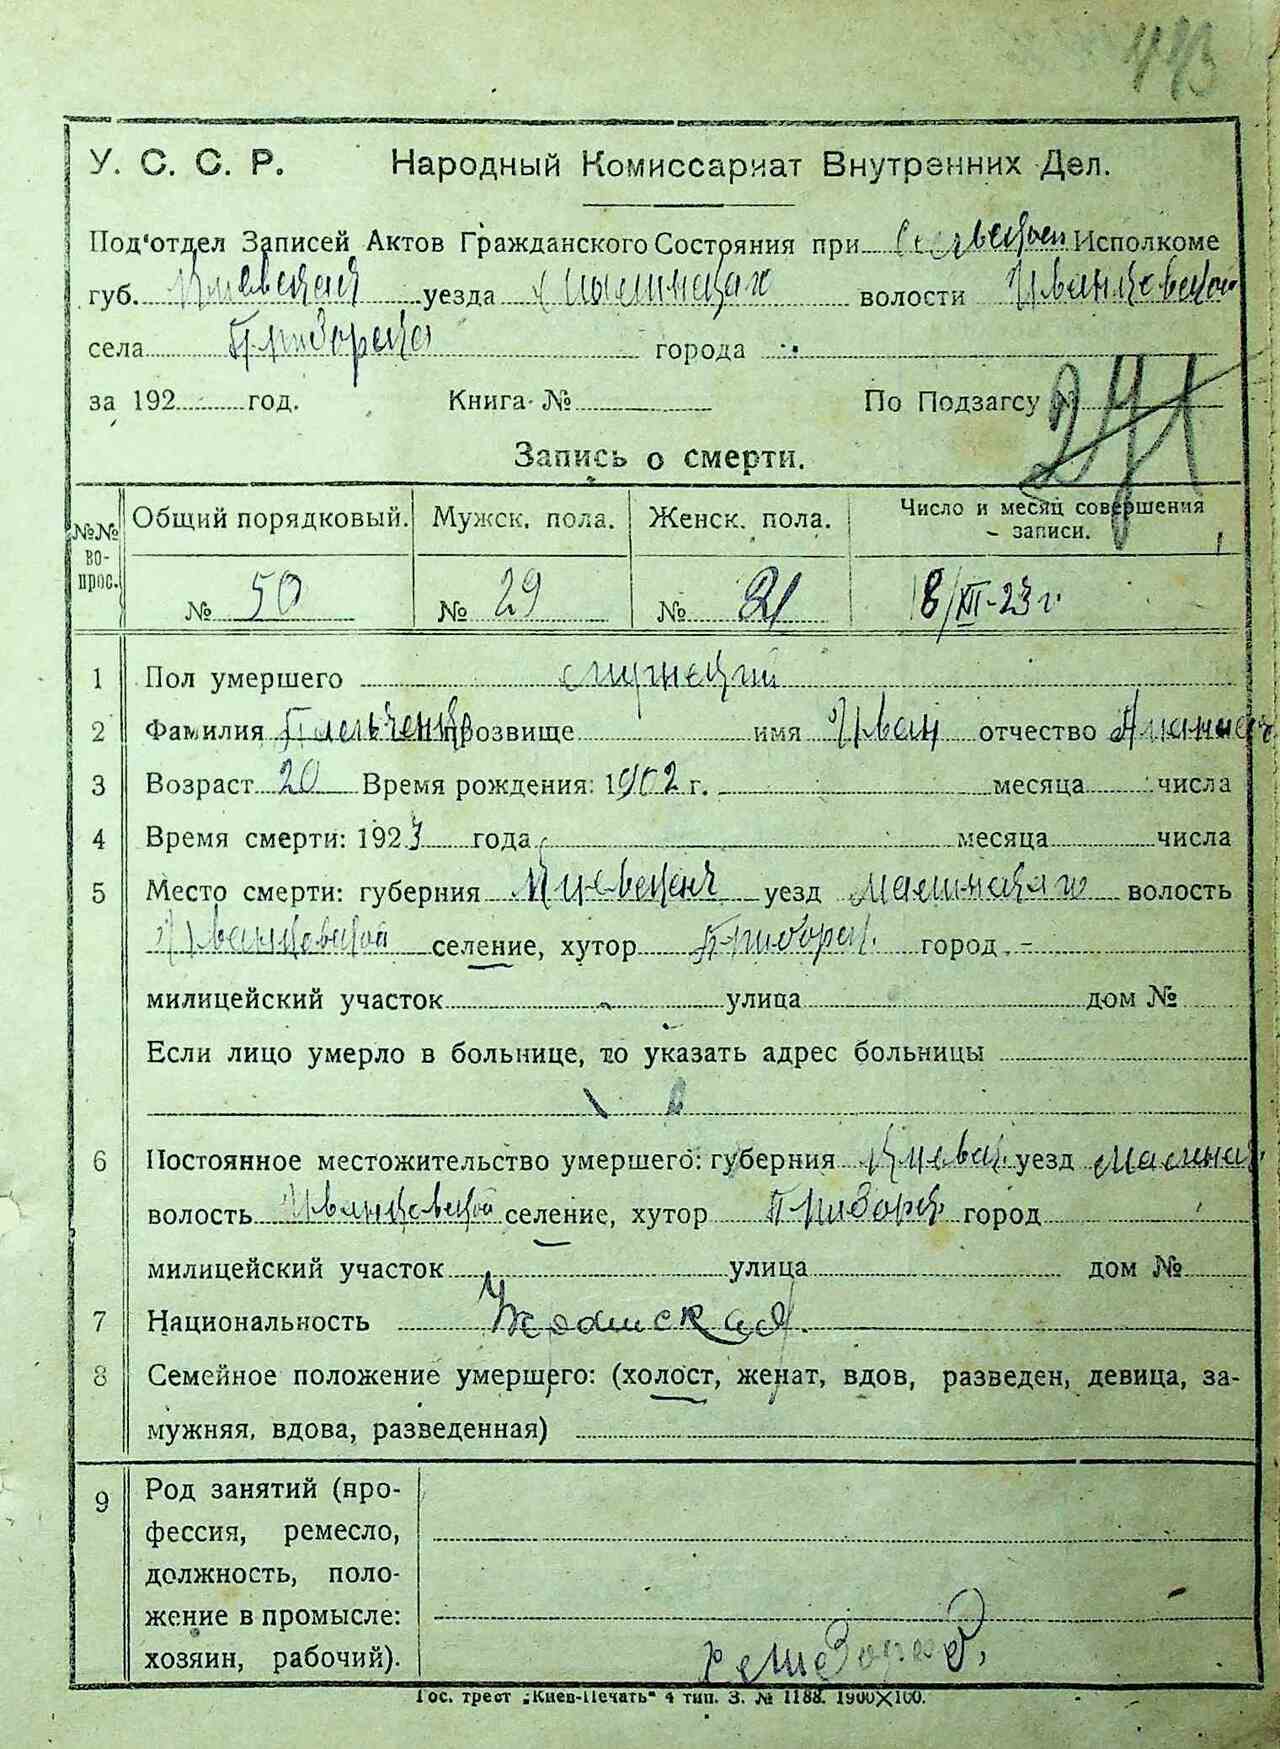 У. С. С. Р. Народный Комиссариат Внутренних Дел.
Под'отдел Записей Актов Гражданского Состояния при Сельском Исполкоме
губ. Киевская уезда волости Иванковской
села города
за 192 год. Книга № По Подзагсу №
Запись о смерти.
№№ вопрос. Общий порядковый. Мужск. пола. Женск. пола. Число и месяц совершения записи.
№ 50 № 29 № 21 8/XII-23 г.
1 Пол умершего мужеский
2 Фамилия прозвище имя Иван отчество
3 Возраст 20 Время рождения: 1902 г. месяца числа
4 Время смерти: 1923 года месяца числа
5 Место смерти: губерния уезд волость
Иванковской селение, хутор Приборск. город -
милицейский участок улица дом №
Если лицо умерло в больнице, то указать адрес больницы
6 Постоянное местожительство умершего: губерния Киевск. уезд
волость Иванковской селение, хутор город
милицейский участок улица дом №
7 Национальность
8 Семейное положение умершего: (холост, женат, вдов, разведен, девица, за-
мужняя, вдова, разведенная)
9 Род занятий (про-
фессия, ремесло,
должность, поло-
жение в промысле:
хозяин, рабочий).
Гос. трест „Киев-Печать“ 4 тип. З. № 1188. 1900×100.